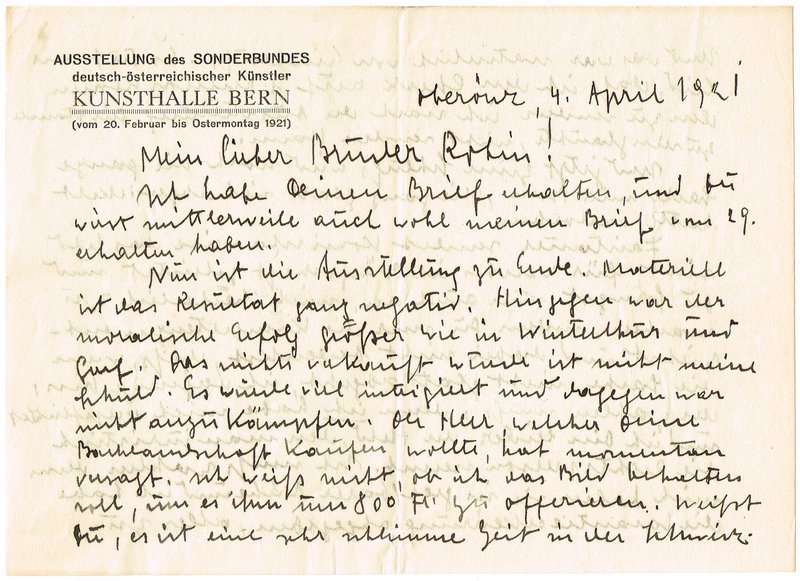 AUSSTELLUNG des SONDERBUNDES
deutsch-österreichischer Künstler
KUNSTHALLE BERN
(vom 20. Februar bis Ostermontag 1921)
4. April 1921
Mein lieber Bruder Robin!
Ich habe Deinen Brief erhalten, und Du
wirst mittlerweile auch wohl meinen Brief vom 29.
erhalten haben.
Nun ist die Ausstellung zu Ende. Materiell
ist das Resultat ganz negativ. Hingegen war der
moralische Erfolg größer wie in Winterthur und
Genf. Das nichts verkauft wurde ist nicht meine
Schuld. Es wurde viel intrigiert und dagegen war
nicht anzukämpfen. Der Herr, welcher Deine
Bachlandschaft kaufen wollte, hat momentan
versagt. Ich weiß nicht, ob ich das Bild behalten
soll, um es ihm um 800 Fr. zu offerieren. Weißt
Du, es ist eine sehr schlimme Zeit in der Schweiz.